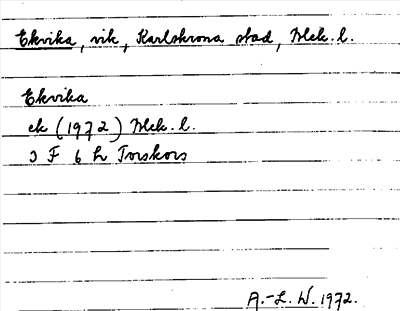 Ekvika, vik, Karlskrona stad, Blek. l.
Ekvika
ek (1972) Blek. l.
3 F 6 h Torskors
A.-L. W. 1972.